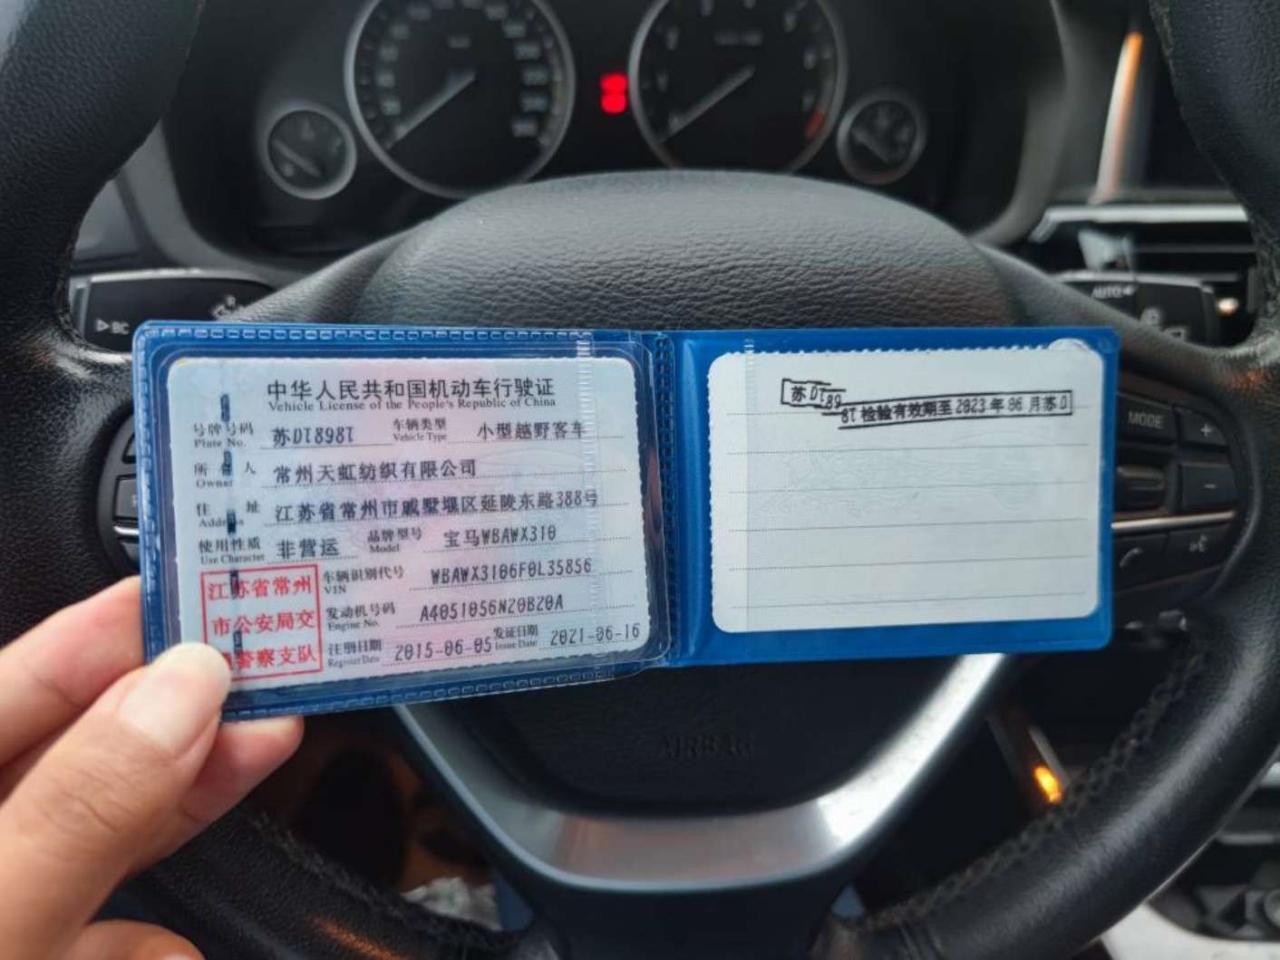 中华人民共和国机动车行驶证
Vehicle License of the People's Republic of China
号牌号码 苏DT898T 车辆类型 小型越野客车
Plate No. Vehicle Type
所 人 常州天虹纺织有限公司
Owner
住 址 江苏省常州市戚墅堰区延陵东路388号
Address
使用性质 非营运 品牌型号 宝马WBAWX310
Use Character Model
江苏省常州
市公安局交
警察支队
车辆识别代号 WBAWX3106F0L35856
VIN
发动机号码 A4051056N20B20A
Engine No.
注册日期 2015-06-05 发证日期 2021-06-16
Register Date Issue Date
苏DT89
8T检验有效期至2023年06月苏D
MODE
AUTO
BC
AIRBAG